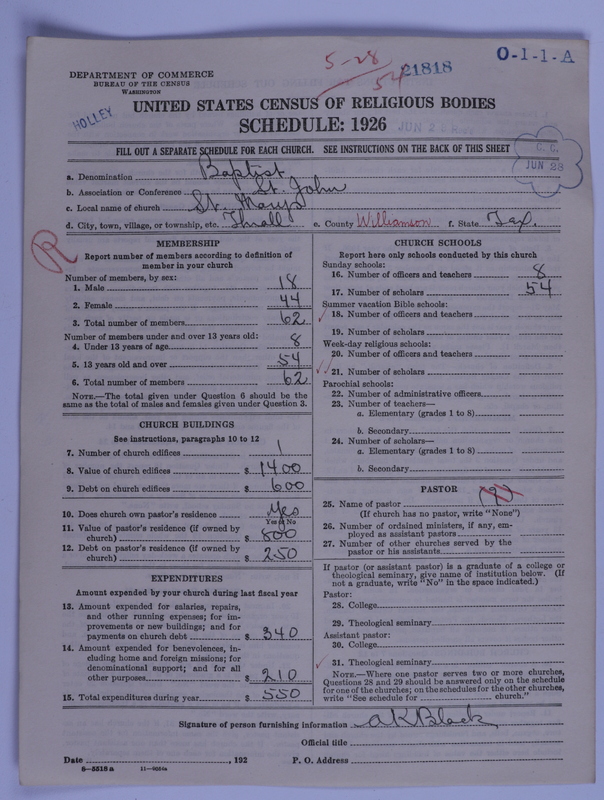 5-28
54
21818
O-1-1-A
DEPARTMENT OF COMMERCE
BUREAU OF THE CENSUS
WASHINGTON
HOLLEY
UNITED STATES CENSUS OF RELIGIOUS BODIES
SCHEDULE: 1926
JUN 2
FILL OUT A SEPARATE SCHEDULE FOR EACH CHURCH. SEE INSTRUCTIONS ON THE BACK OF THIS SHEET
C. C.
JUN 28
a. Denomination Baptist
b. Association or Conference St. John
c. Local name of church St. Marys
d. City, town, village, or township, etc. Thrall e. County Williamson f. State Tex.
R
MEMBERSHIP
Report number of members according to definition of
member in your church
Number of members, by sex:
1. Male 18
2. Female 44
3. Total number of members 62
Number of members under and over 13 years old:
4. Under 13 years of age 8
5. 13 years old and over 54
6. Total number of members 62
NOTE.—The total given under Question 6 should be
the same as the total of males and females given under Question 3.
CHURCH BUILDINGS
See instructions, paragraphs 10 to 12
7. Number of church edifices 1
8. Value of church edifices $ 1400
9. Debt on church edifices $ 600
10. Does church own pastor's residence Yes
Yes or No
11. Value of pastor's residence (if owned by
church) $ 800
12. Debt on pastor's residence (if owned by
church) $ 250
EXPENDITURES
Amount expended by your church during last fiscal year
13. Amount expended for salaries, repairs,
and other running expenses; for im-
provements or new buildings; and for
payments on church debt $ 340
14. Amount expended for benevolences, in-
cluding home and foreign missions; for
denominational support; and for all
other purposes $ 210
15. Total expenditures during year $ 550
CHURCH SCHOOLS
Report here only schools conducted by this church
Sunday schools:
16. Number of officers and teachers 8
17. Number of scholars 54
Summer vacation Bible schools:
18. Number of officers and teachers
19. Number of scholars
Week-day religious schools:
20. Number of officers and teachers
21. Number of scholars
Parochial schools:
22. Number of administrative officers
23. Number of teachers—
a. Elementary (grades 1 to 8)
b. Secondary
24. Number of scholars—
a. Elementary (grades 1 to 8)
b. Secondary
PASTOR
25. Name of pastor
(If church has no pastor, write "None")
26. Number of ordained ministers, if any, em-
ployed as assistant pastors
27. Number of other churches served by the
pastor or his assistants
If pastor (or assistant pastor) is a graduate of a college or
theological seminary, give name of institution below. (If
not a graduate, write "No" in the space indicated.)
Pastor:
28. College
29. Theological seminary
Assistant pastor:
30. College
31. Theological seminary
NOTE.—Where one pastor serves two or more churches,
Questions 28 and 29 should be answered only on the schedule
for one of the churches; on the schedules for the other churches,
write "See schedule for church."
Signature of person furnishing information A K Black
Official title
Date , 192 P. O. Address
6-5518a 11-9054a